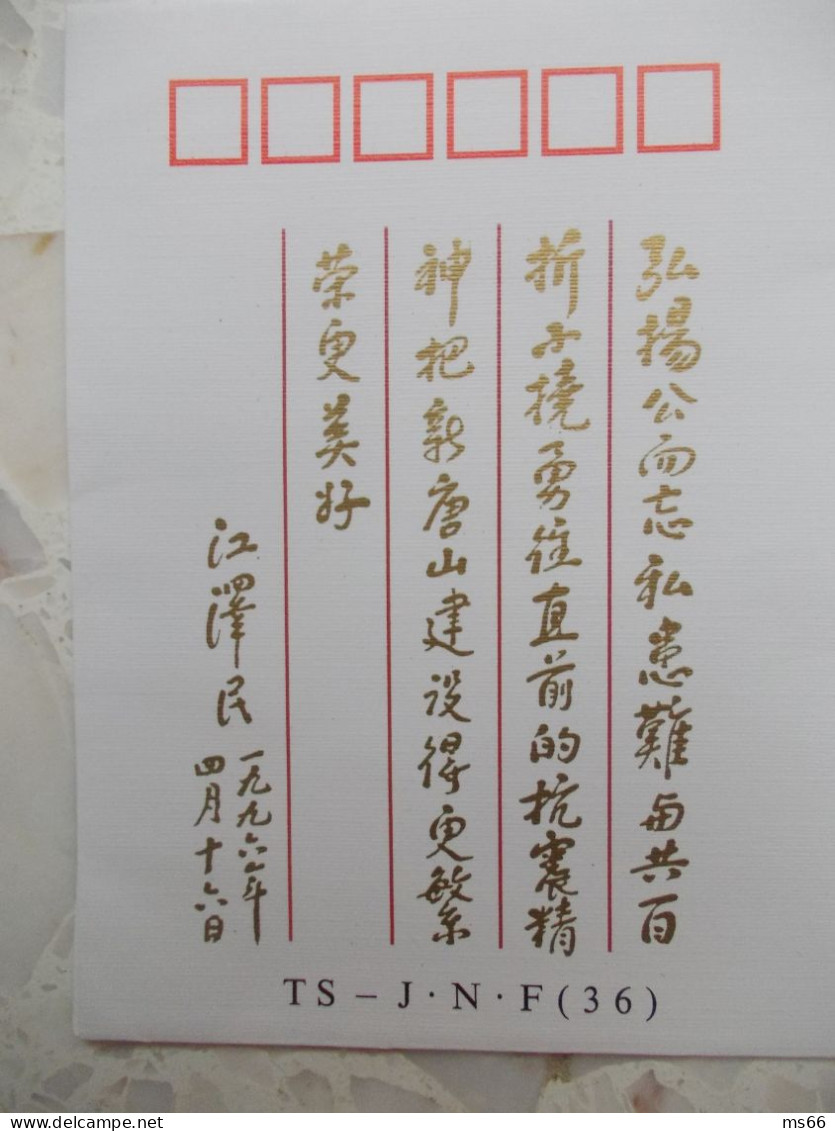 弘揚公而忘私患難与共百
折不撓勇往直前的抗震精
神把新唐山建设得更繁
荣更美好
江澤民
一九九六年
四月十六日
TS – J · N · F (36)
delcampe.net
ms66